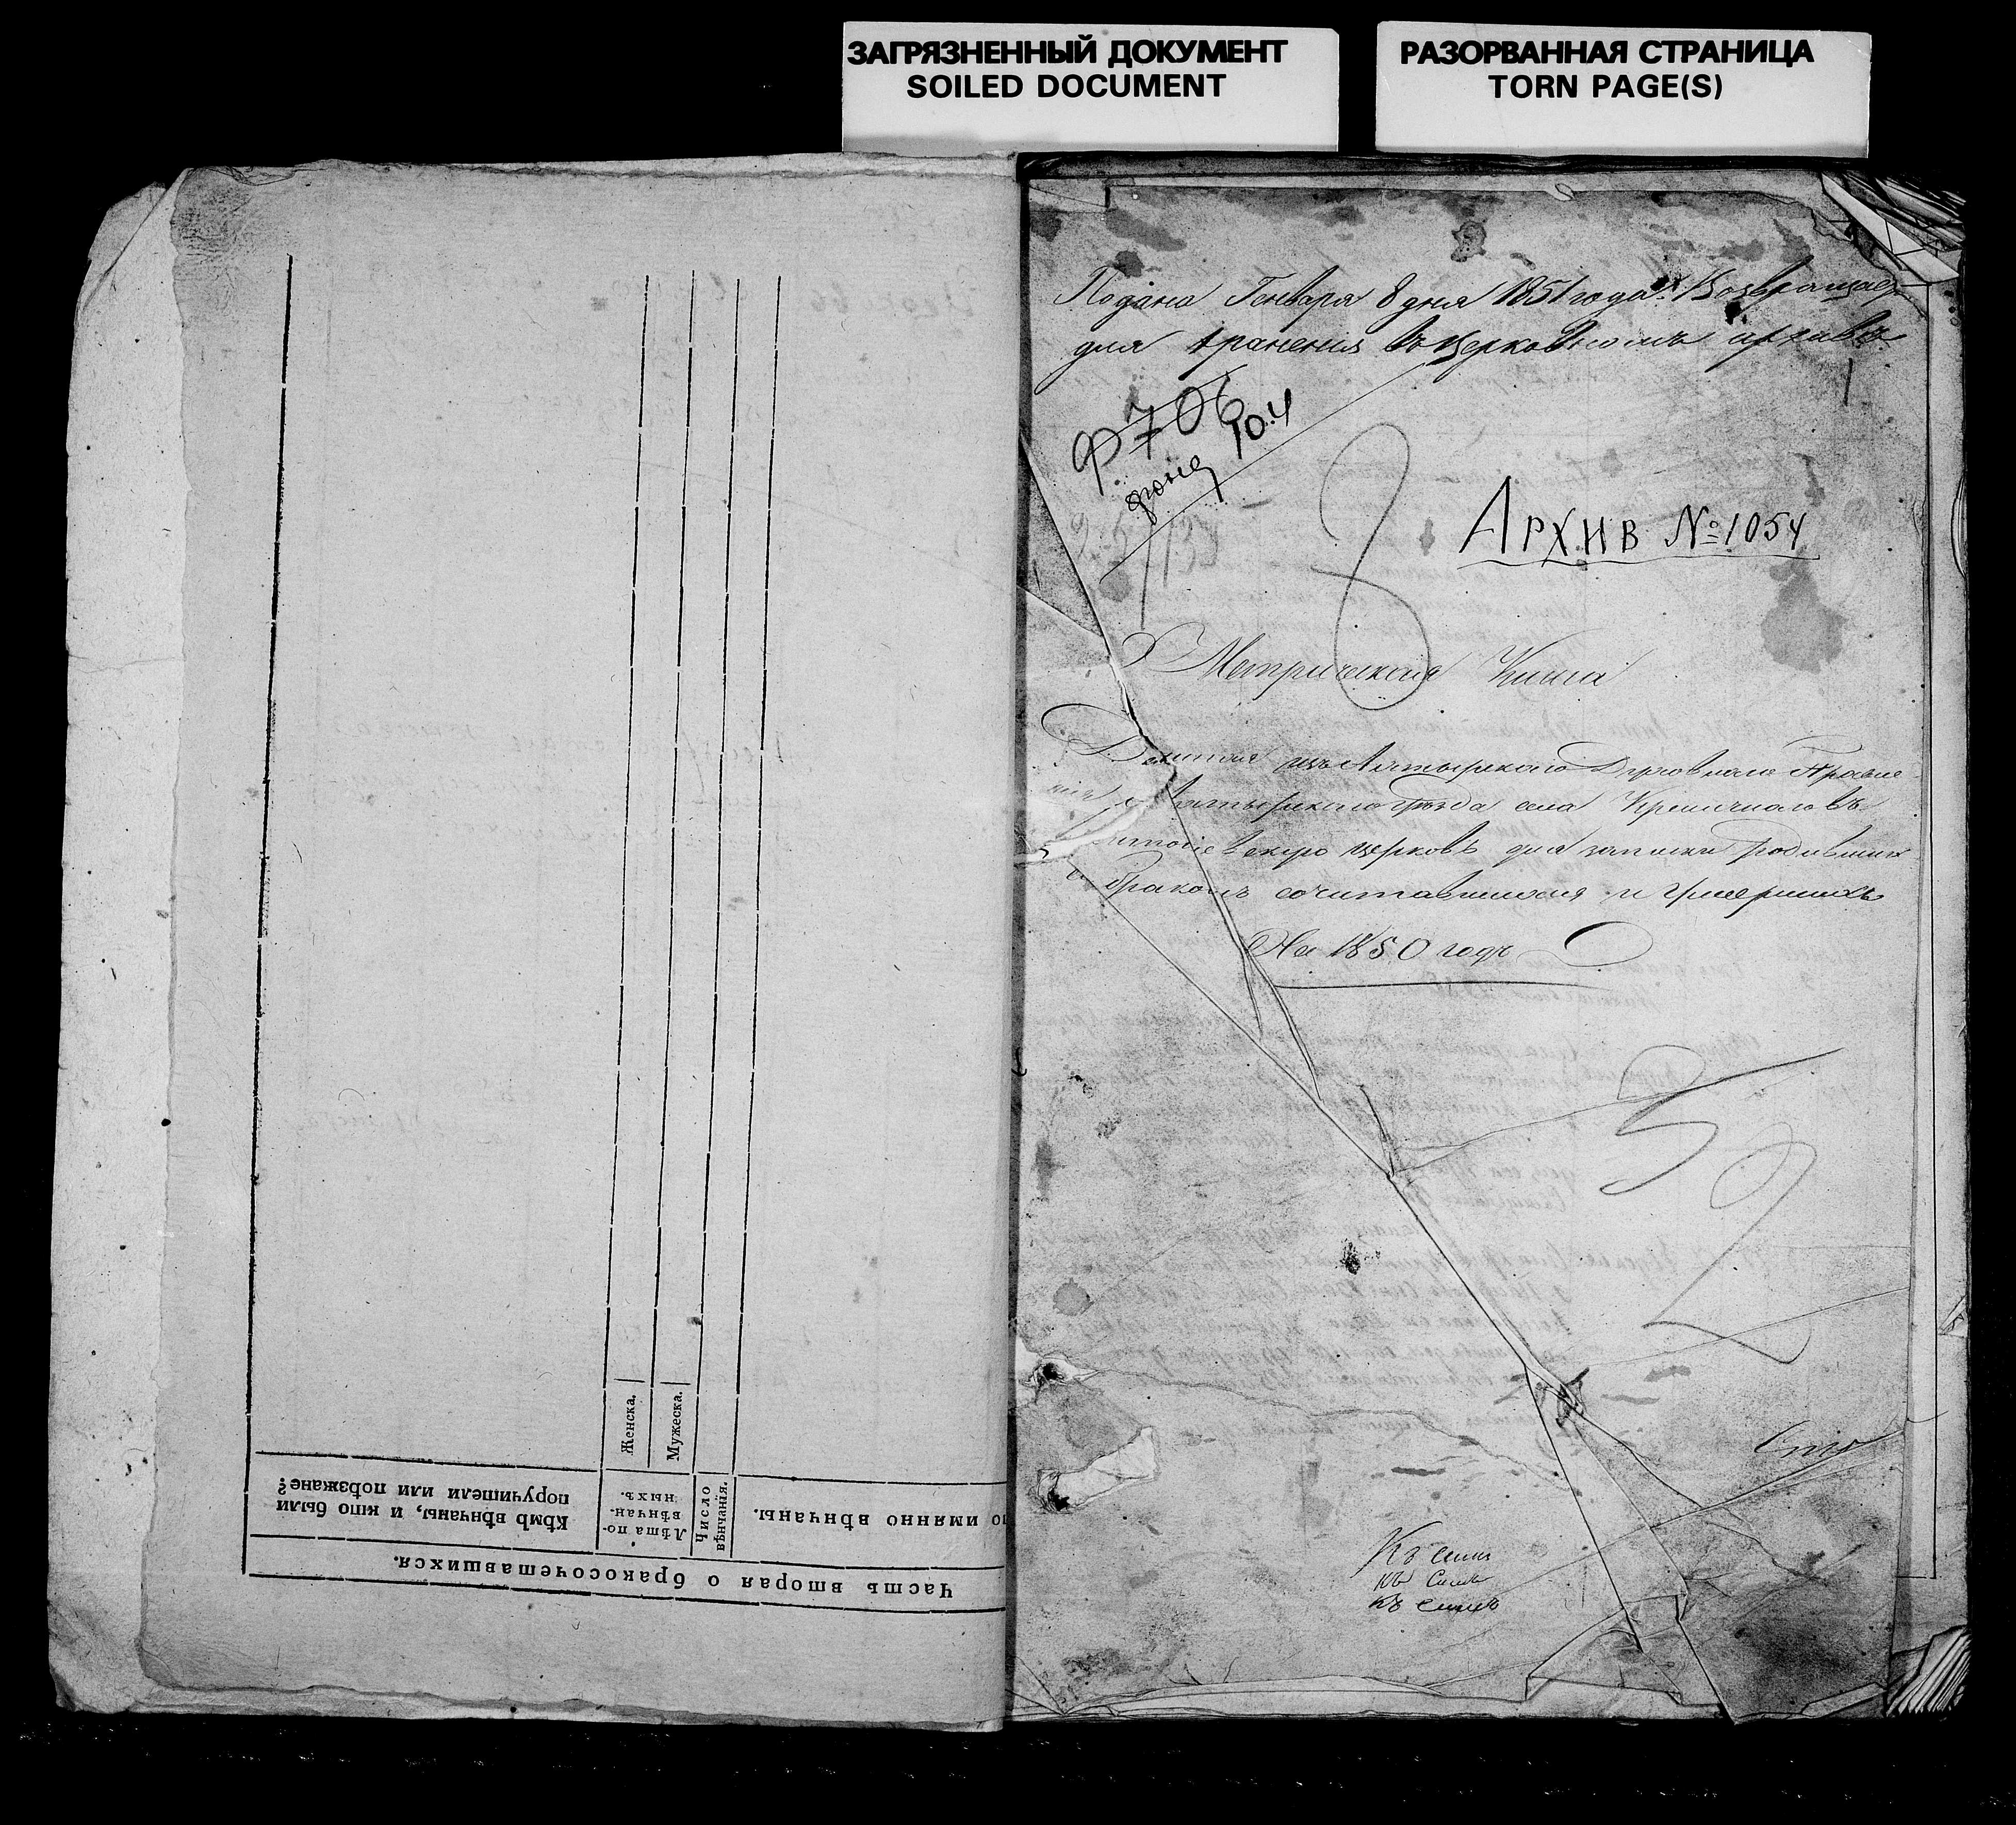 ЗАГРЯЗНЕННЫЙ ДОКУМЕНТ
SOILED DOCUMENT
РАЗОРВАННАЯ СТРАНИЦА
TORN PAGE(S)
Часть вторая о бракосочетавшихся.
по имянно вѣнчаны.
Число
вѣнчанія.
Лѣта по-
вѣнчан-
ныхъ.
Мужеска.
Женска.
Кѣмъ вѣнчаны, и кто были
поручители или поѣзжане?
Подана Генваря 8 дня 1851 года. Возвращает
для хранения въ церковномъ архивѣ
1
Ф 706
фонд 10.4
8
Архив № 1054
Метрическая Книга
Данная изъ Ахтырского Духовнаго Правле
нія Ахтырского Уѣзда села
церковь для записки родивших
бракомъ сочитавшихся и умерших
На 1850 годъ
52
Къ симъ
къ симъ
къ симъ